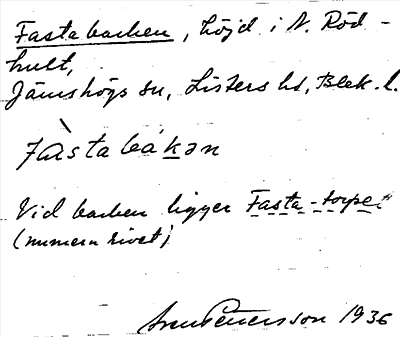 Fastabacken, höjd i N. Röd-
hult,
Jämshögs sn, Listers hd, Blek. l.
fàstabákən
Vid backen ligger Fasta-torpet
(numera rivet)
Sven Petersson 1936